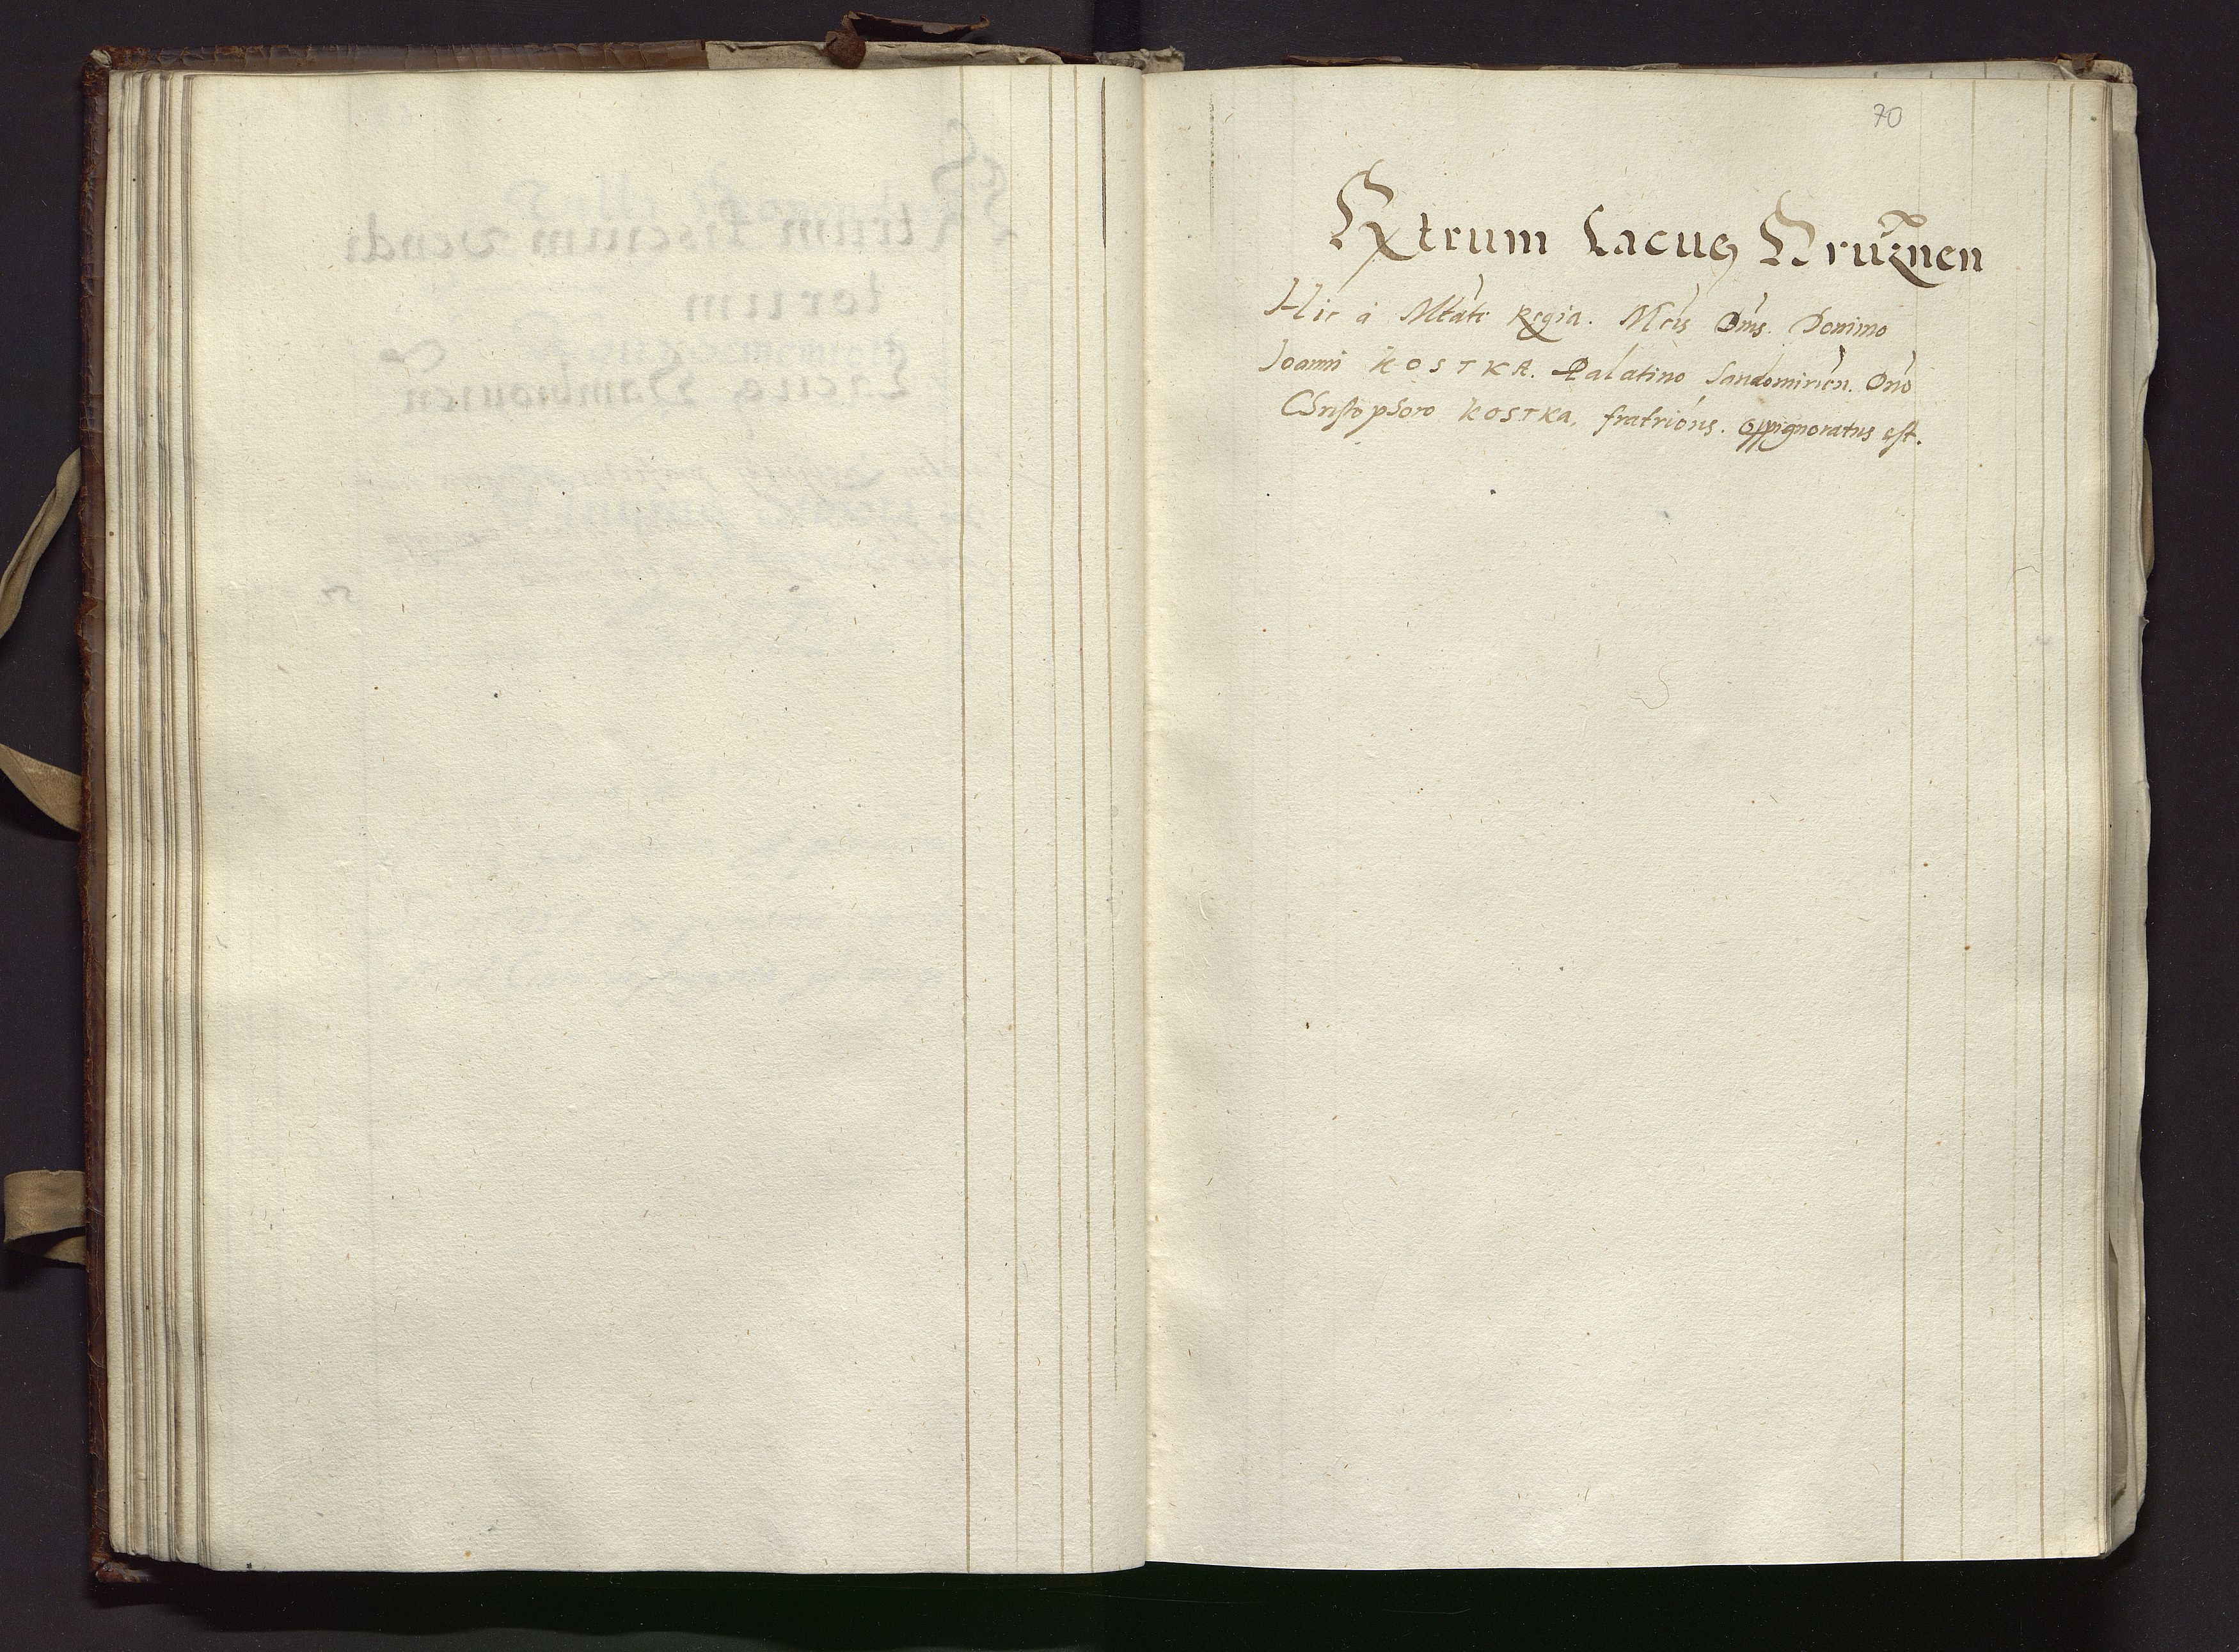 70
Rtrum Lacus Kruznen
Hic a Mtate Regia. Mcis Dnis. Donimo
Joanni KOSTKA. Palatino Sandomirien. Dno
Christophoro KOSTKA, fratribus. oppignoratus est.